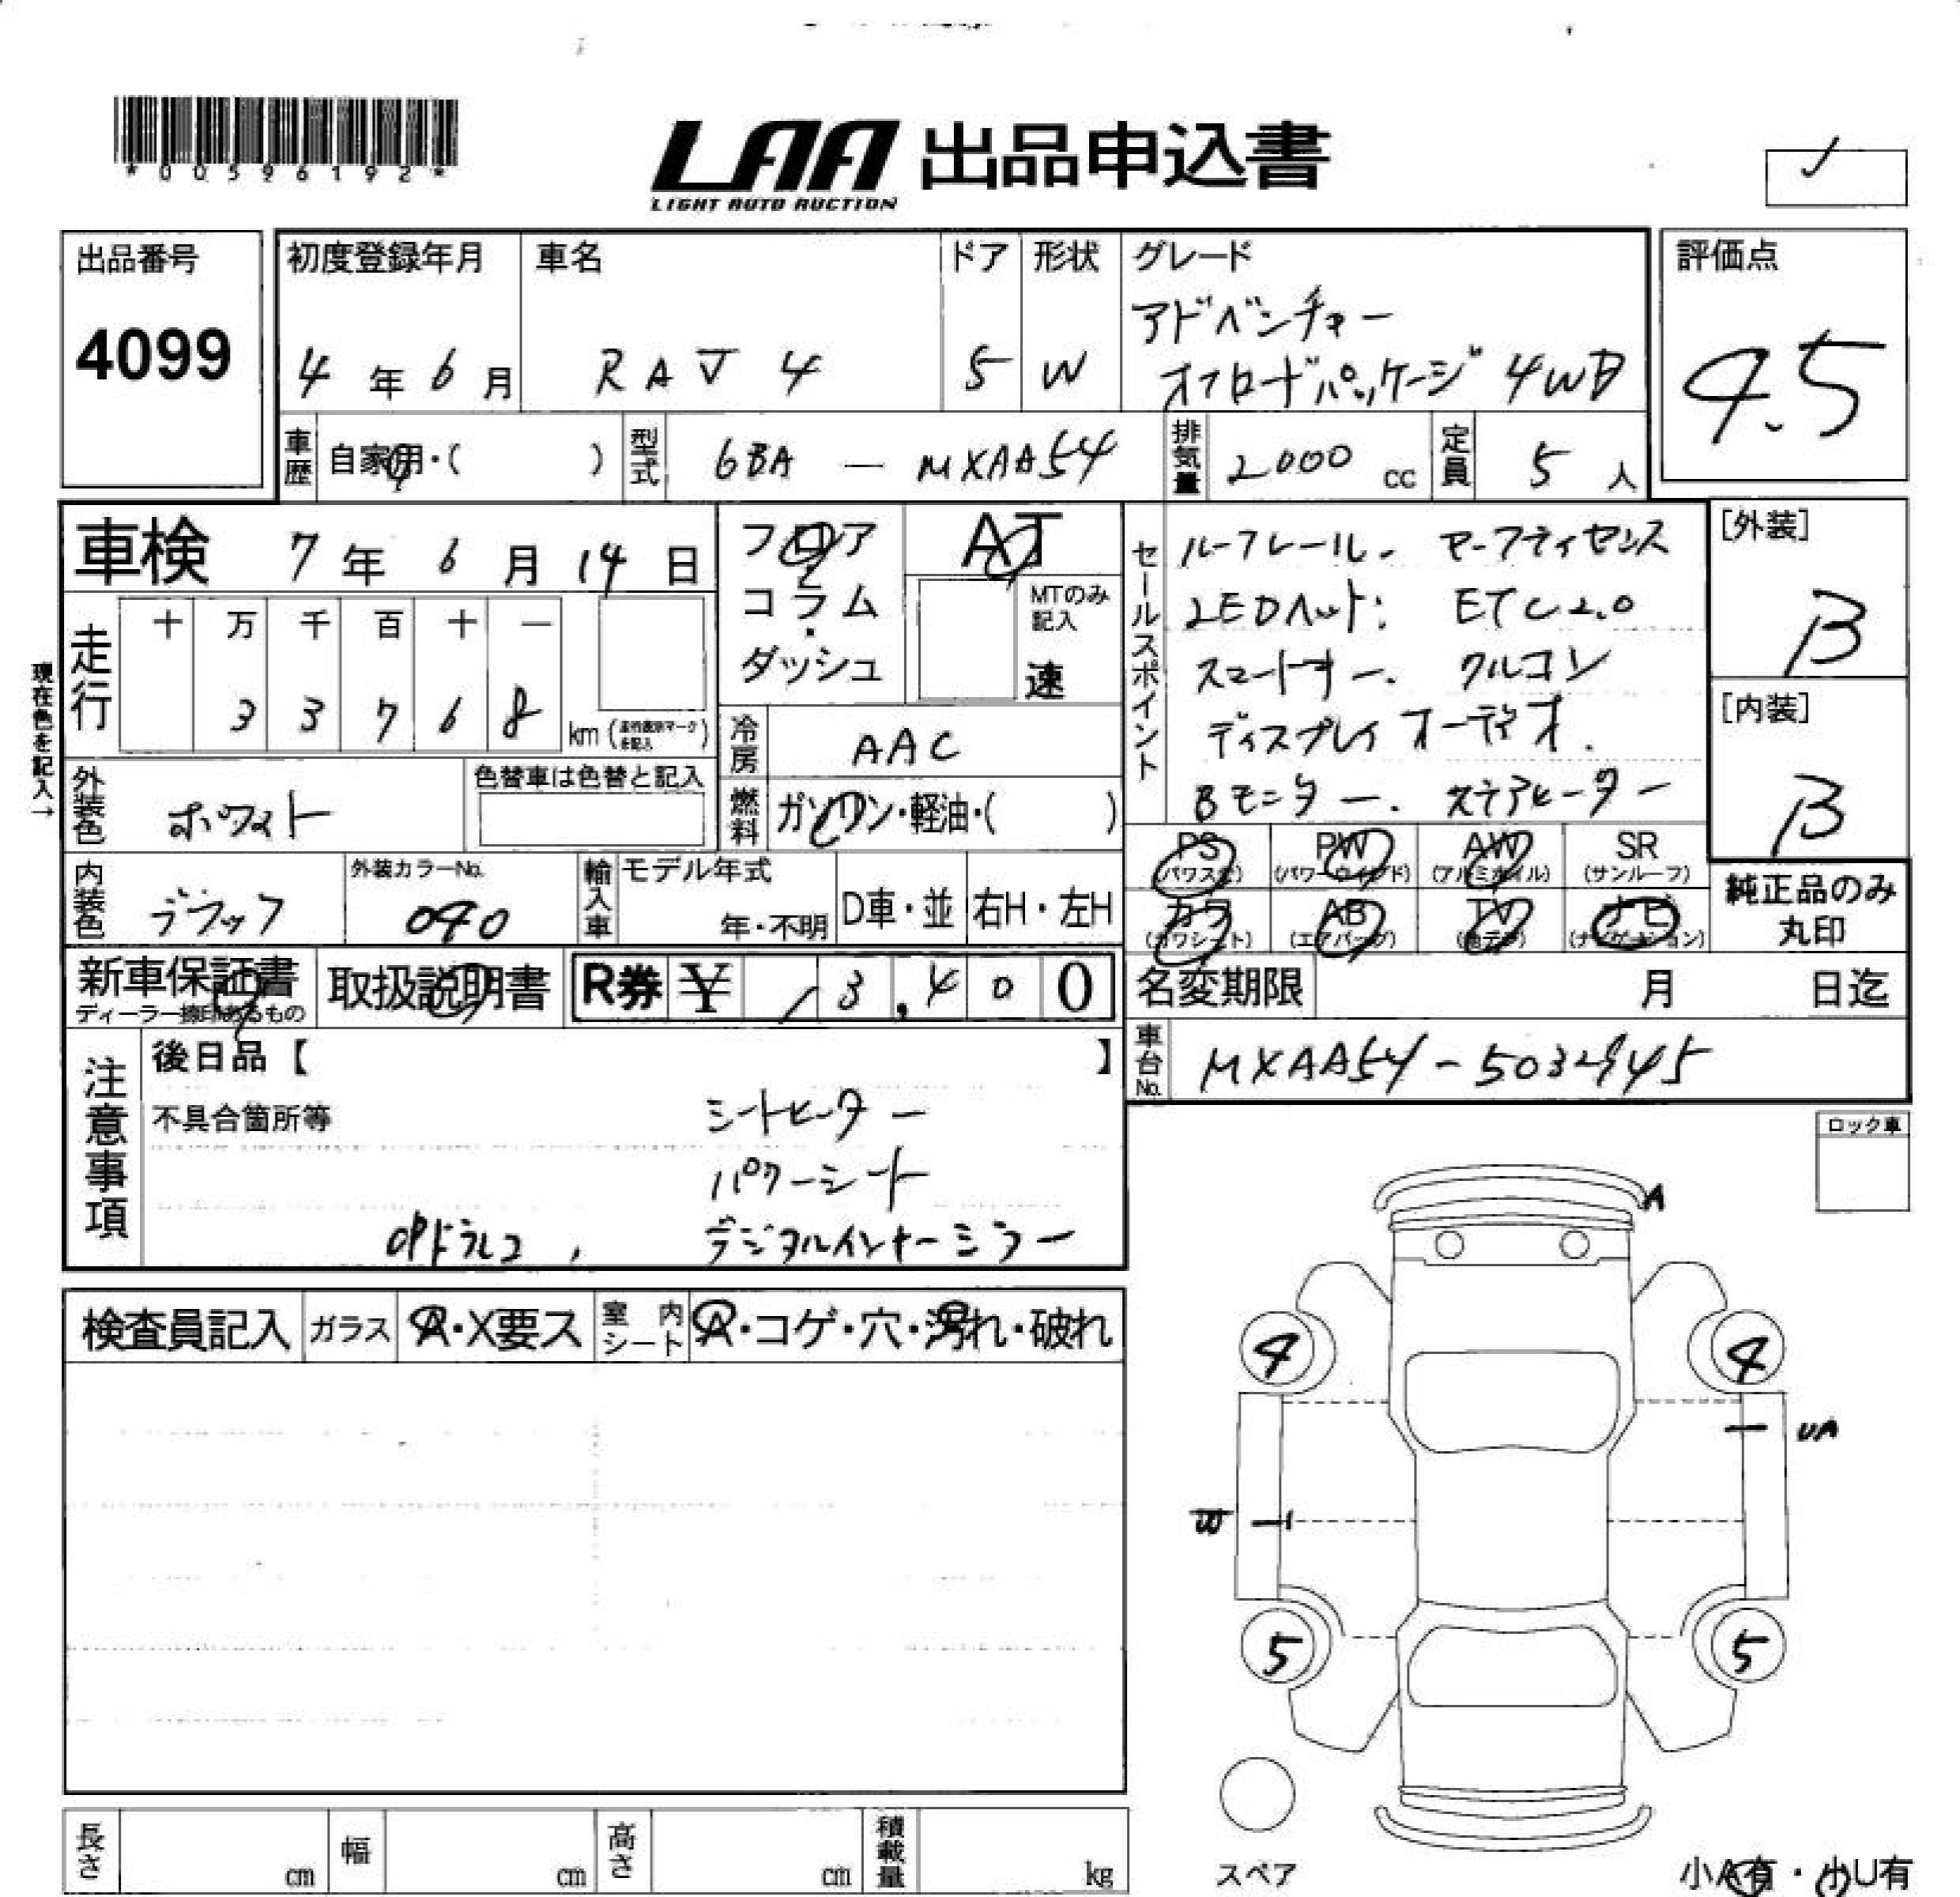 *00596192*
LAA 出品申込書
LIGHT AUTO AUCTION
出品番号
4099
初度登録年月
4年6月
車名
RAV4
ドア
5
形状
W
グレード
アドベンチャー
オフロードパッケージ 4WD
評価点
4.5
車歴 自家用・( )
型式 6BA — MXAA54
排気量 2000 cc
定員 5 人
車検 7年6月14日
フロア
コラム
・
ダッシュ
AT
MTのみ
記入
速
走行
十 万 千 百 十 一
3 3 7 6 8
km
を記入
現在色を記入→
外装色 ホワイト
色替車は色替と記入
冷房 AAC
燃料 ガソリン・軽油・( )
セールスポイント
ルーフレール. セーフティセンス
LEDヘット: ETC2.0
スマートキー. クルコン
ディスプレイオーディオ.
Bモニター. ステアヒーター
[外装]
B
[内装]
B
内装色 ブラック
外装カラーNo.
040
輸入車
モデル年式
年・不明
D車・並
右H・左H
PS
(パワステ)
PW
(パワーウィンド)
AW
(アルミホイル)
SR
(サンルーフ)
カワ
(カワシート)
AB
(エアバッグ)
TV
(地デジ)
ナビ
(ナビゲーション)
純正品のみ
丸印
新車保証書
ディーラー捺印あるもの
取扱説明書
R券 ¥ 13,400
名変期限 月 日迄
車台No. MXAA54-5032945
注意事項
後日品【 】
不具合箇所等
シートヒーター
パワーシート
OPドラレコ, デジタルインナーミラー
ロック車
A
検査員記入
ガラス
A・X要ス
室内シート
A・コゲ・穴・汚れ・破れ
4
4
UA
W
5
5
スペア
長さ cm
幅 cm
高さ cm
積載量 kg
小A有・小U有